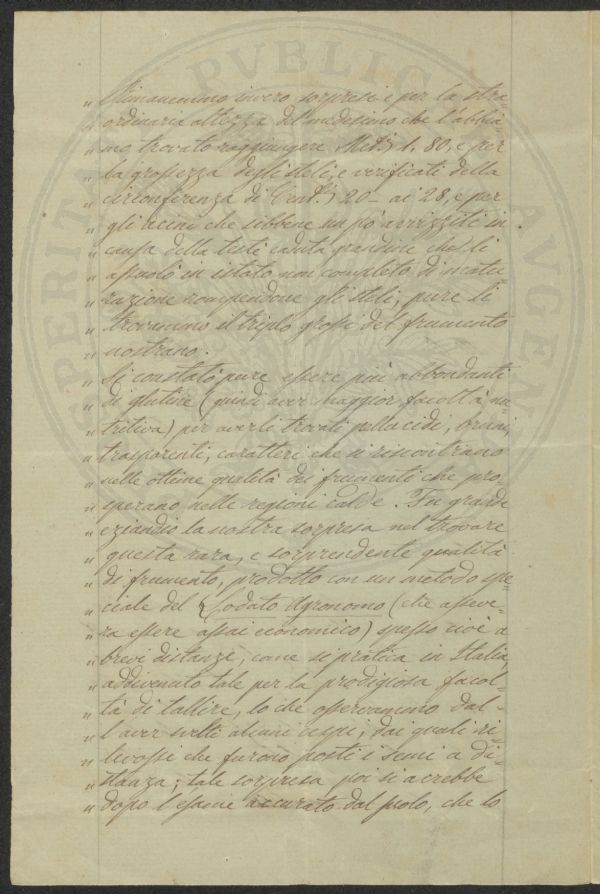 " Rimanemmo invero sorpresi e per la stra=
" ordinaria altezza del medesimo che l'abbia=
" mo trovato raggiungere Met.i 1. 80, e per
" la grossezza degli steli, e verificati della
" circonferenza di Cent.i 20 – ai 28, e per
" gli acini che sibbene un pò avvizziti in
" causa della testè caduta grandine che li
" in istato non completo di matu=
" razione rompendone gli steli, pure li
" trovammo il triplo grossi del frumento
" nostrano.
" Si constatò pure essere più abbondanti
" di glutine (quindi aver maggior facoltà nu=
" tritiva) per averli trovati pellucidi, bruni,
" trasparenti, caratteri che si riscontrano
" nelle ottime qualità dei frumenti che pro=
" sperano nelle regioni calde. Fu grande
" eziandio la nostra sorpresa nel trovare
" questa rara, e sorprendente qualità
" di frumento, prodotto con un metodo spe=
" ciale del Lodato Agronomo (che asseve=
" ra essere assai economico) spesso cioè a
" brevi distanze, come si pratica in Italia,
" addivenuto tale per la prodigiosa facol=
" tà di tallire, lo che osservammo dal=
" l'aver svelti alcuni cespi, dai quali ri=
" levossi che furono posti i semi a di=
" stanza; tale sorpresa poi si accrebbe
" dopo l'esame accurato del suolo, che lo
PVBLIC
AVGENDO